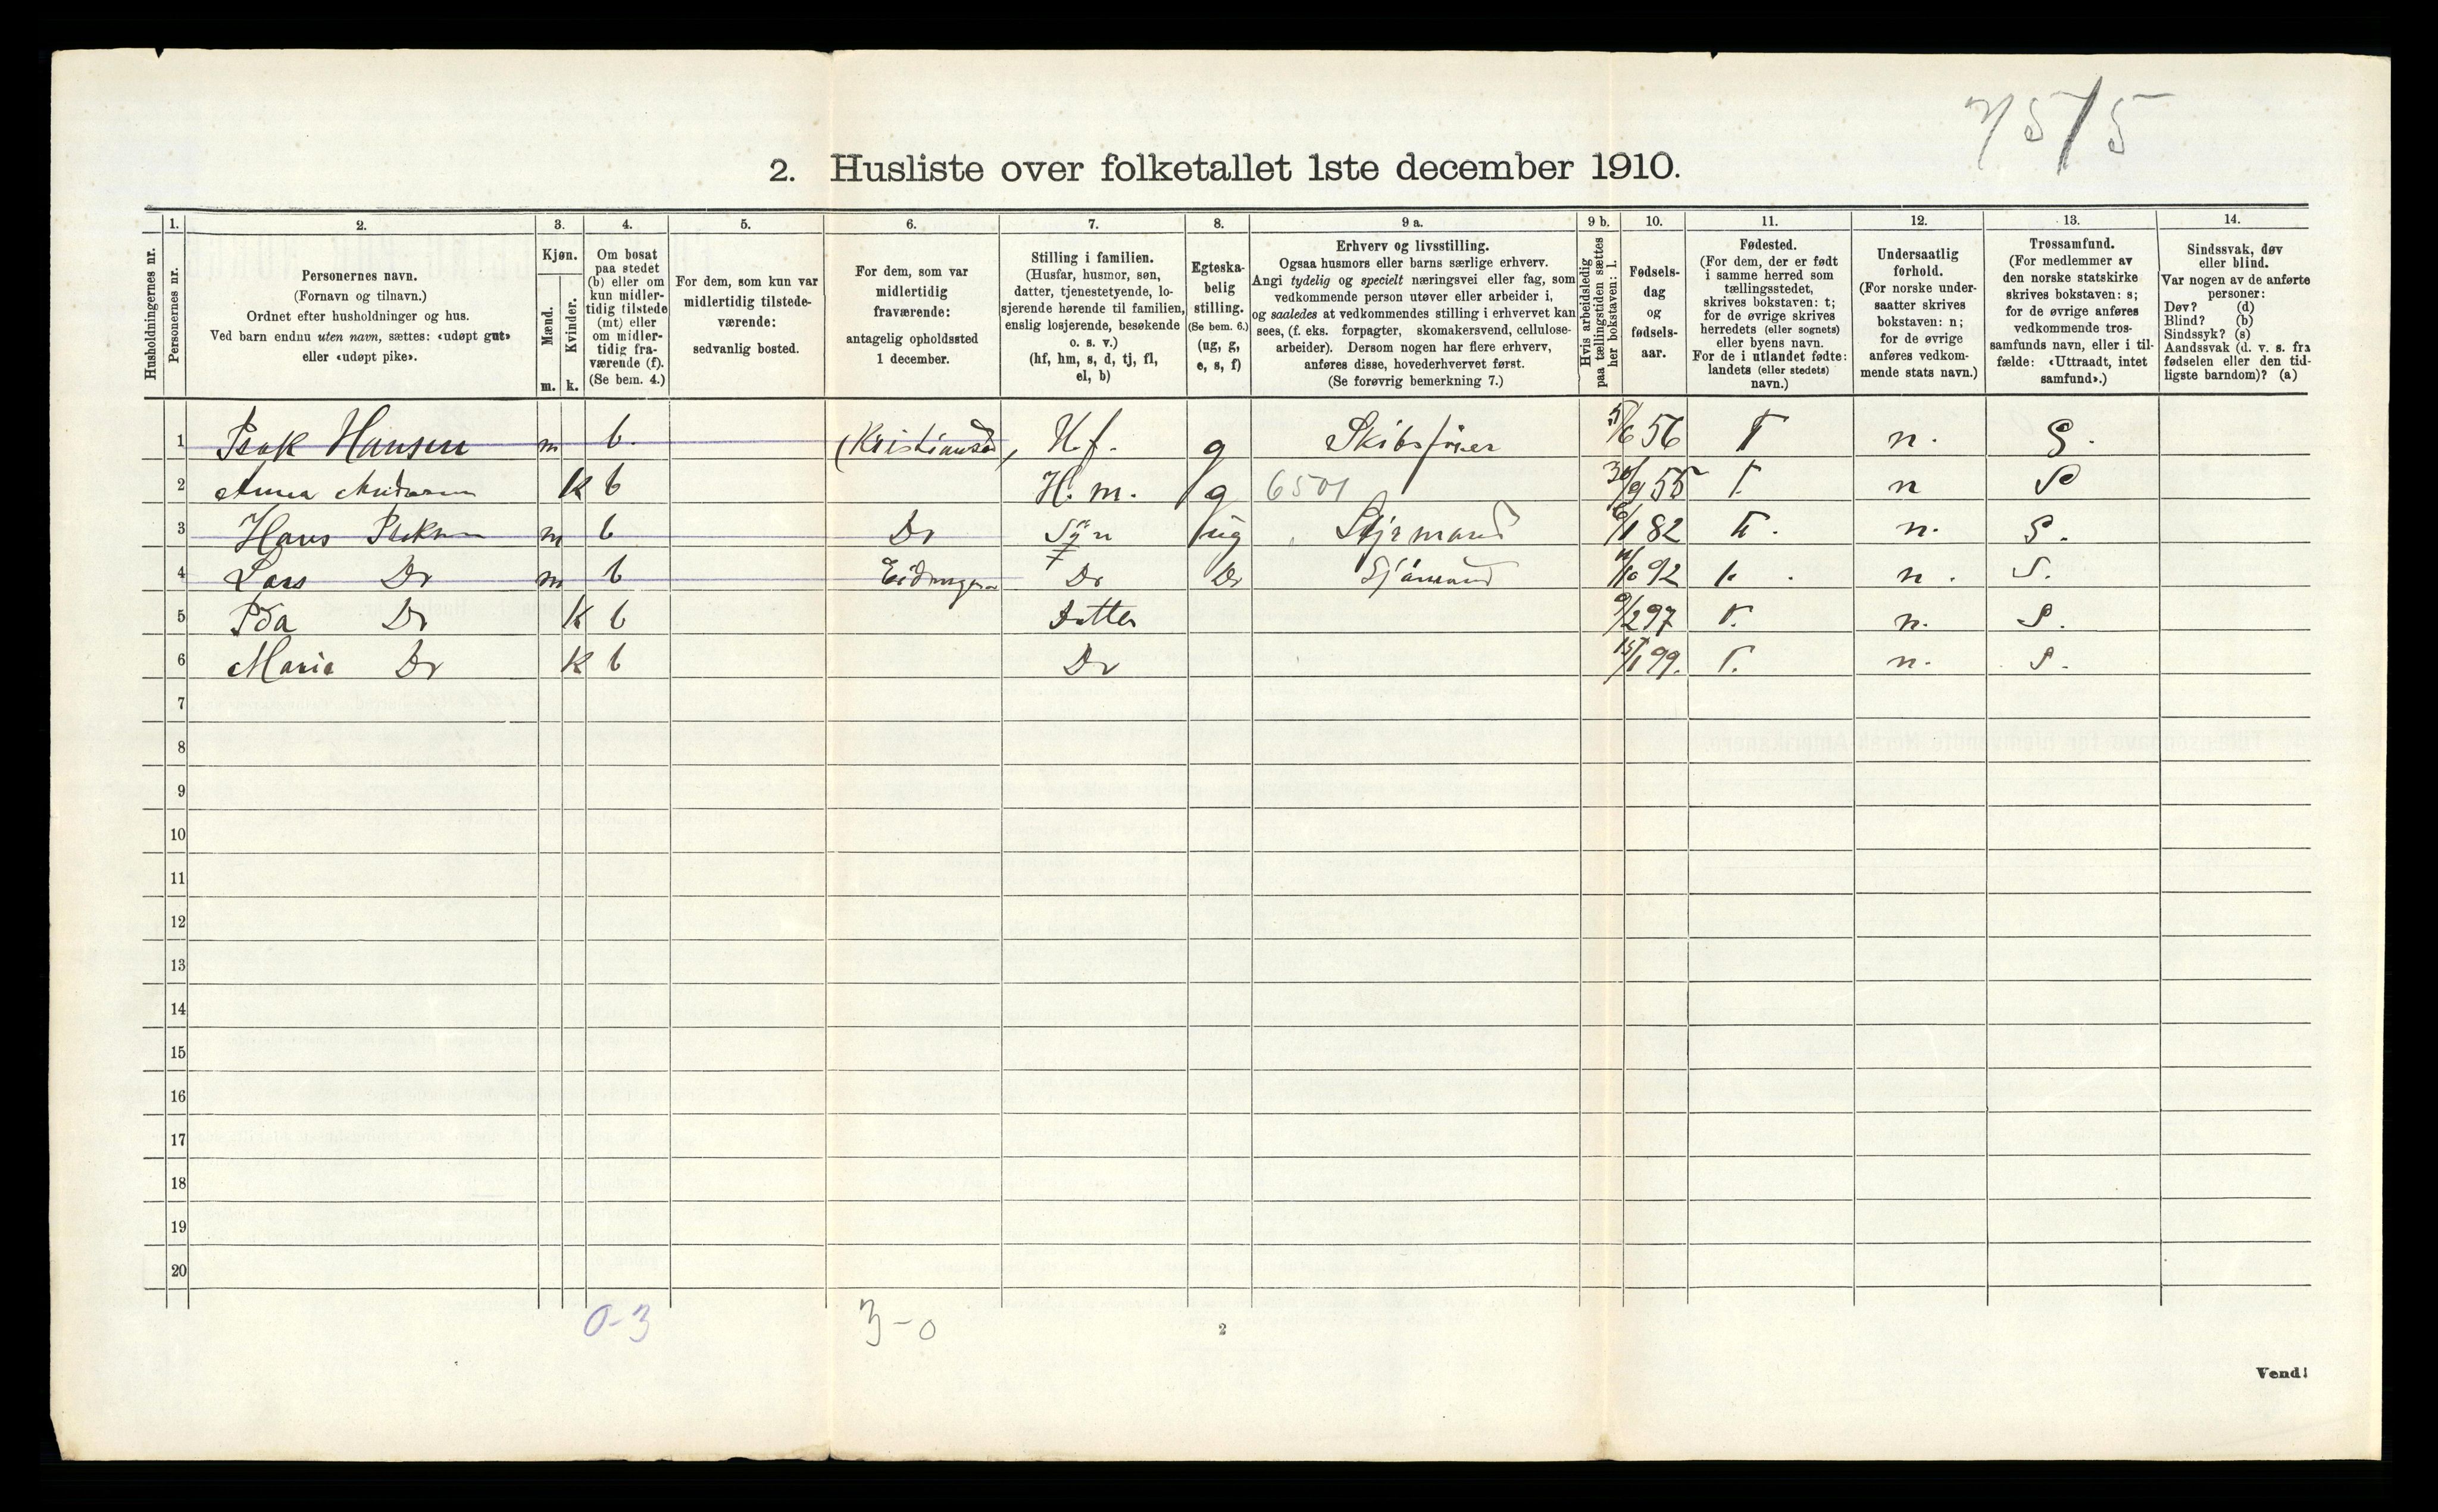 7575
2. Husliste over folketallet 1ste december 1910.
Husholdningernes nr.
1. Personernes nr.
2. Personernes navn.
(Fornavn og tilnavn.)
Ordnet efter husholdninger og hus.
Ved barn endnu uten navn, sættes: «udøpt gut»
eller «udøpt pike».
3. Kjøn.
Mænd. m.
Kvinder. k.
4. Om bosat
paa stedet
(b) eller om
kun midler-
tidig tilstede
(mt) eller
om midler-
tidig fra-
værende (f).
(Se bem. 4.)
5. For dem, som kun var
midlertidig tilstede-
værende:
sedvanlig bosted.
6. For dem, som var
midlertidig
fraværende:
antagelig opholdssted
1 december.
7. Stilling i familien.
(Husfar, husmor, søn,
datter, tjenestetyende, lo-
sjerende hørende til familien,
enslig losjerende, besøkende
o. s. v.)
(hf, hm, s, d, tj, fl,
el, b)
8. Egteska-
belig
stilling.
(Se bem. 6.)
(ug, g,
e, s, f)
9 a. Erhverv og livsstilling.
Ogsaa husmors eller barns særlige erhverv.
Angi tydelig og specielt næringsvei eller fag, som
vedkommende person utøver eller arbeider i,
og saaledes at vedkommendes stilling i erhvervet kan
sees, (f. eks. forpagter, skomakersvend, cellulose-
arbeider). Dersom nogen har flere erhverv,
anføres disse, hovederhvervet først.
(Se forøvrig bemerkning 7.)
9 b. Hvis arbeidsledig
paa tællingstiden sættes
her bokstaven: l.
10. Fødsels-
dag
og
fødsels-
aar.
11. Fødested.
(For dem, der er født
i samme herred som
tællingsstedet,
skrives bokstaven: t;
for de øvrige skrives
herredets (eller sognets)
eller byens navn.
For de i utlandet fødte:
landets (eller stedets)
navn.)
12. Undersaatlig
forhold.
(For norske under-
saatter skrives
bokstaven: n;
for de øvrige
anføres vedkom-
mende stats navn.)
13. Trossamfund.
(For medlemmer av
den norske statskirke
skrives bokstaven: s;
for de øvrige anføres
vedkommende tros-
samfunds navn, eller i til-
fælde: «Uttraadt, intet
samfund».)
14. Sindssvak, døv
eller blind.
Var nogen av de anførte
personer:
Døv? (d)
Blind? (b)
Sindssyk? (s)
Aandssvak (d. v. s. fra
fødselen eller den tid-
ligste barndom)? (a)
1 Isak Hansen m b. (Kristiansand, H.f. g Skibsfører 5/6 56 T n. S.
2 Anna k b H.m. g 6501 30/9 55 T. n S
3 Hans m b Dr Søn ug Styrmand /1 82 T. n. S.
4 Lars Dr m b Dr Dr Sjømand /10 92 t. n. S.
5 Ida Dr k b Datter 9/2 97 T. n. S.
6 Maria Dr k b Dr 15/1 99. T. n. S.
7
8
9
10
11
12
13
14
15
16
17
18
19
20
0-3 3-0
2
Vend!